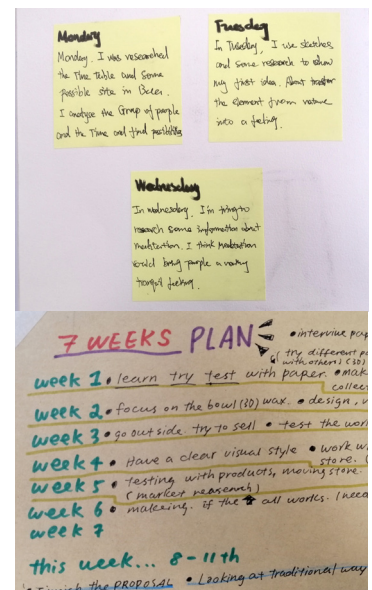 Monday
Monday. I was researched
the Time Table and Some
possible site in Beer.
I analyze the Group of people
and the Time and find posibility
Tuesday
In Tuesday, I use sketches
and some research to show
my first idea. About transfer
the element from nature
into a feeling.
Wednesday
In wednesday, I'm trying to
research some information about
meditation. I think Meditation
could bring people a
tranquil feeling.
7 WEEKS PLAN
• intervine pap
(try different pa
with others) (3D)
week 1 • learn try test with paper. • mak
collec
week 2 • focus on the bowl (3D) wax. • design, v
week 3 • go out side. try to sell • test the wor
week 4 • Have a clear visual style • work w
store. (
week 5 • testing with products, moving store.
(market research)
week 6 • makeing. if the all works. (need
week 7
this week... 8-11th
• Finish the PROPOSAL • Looking at traditional way